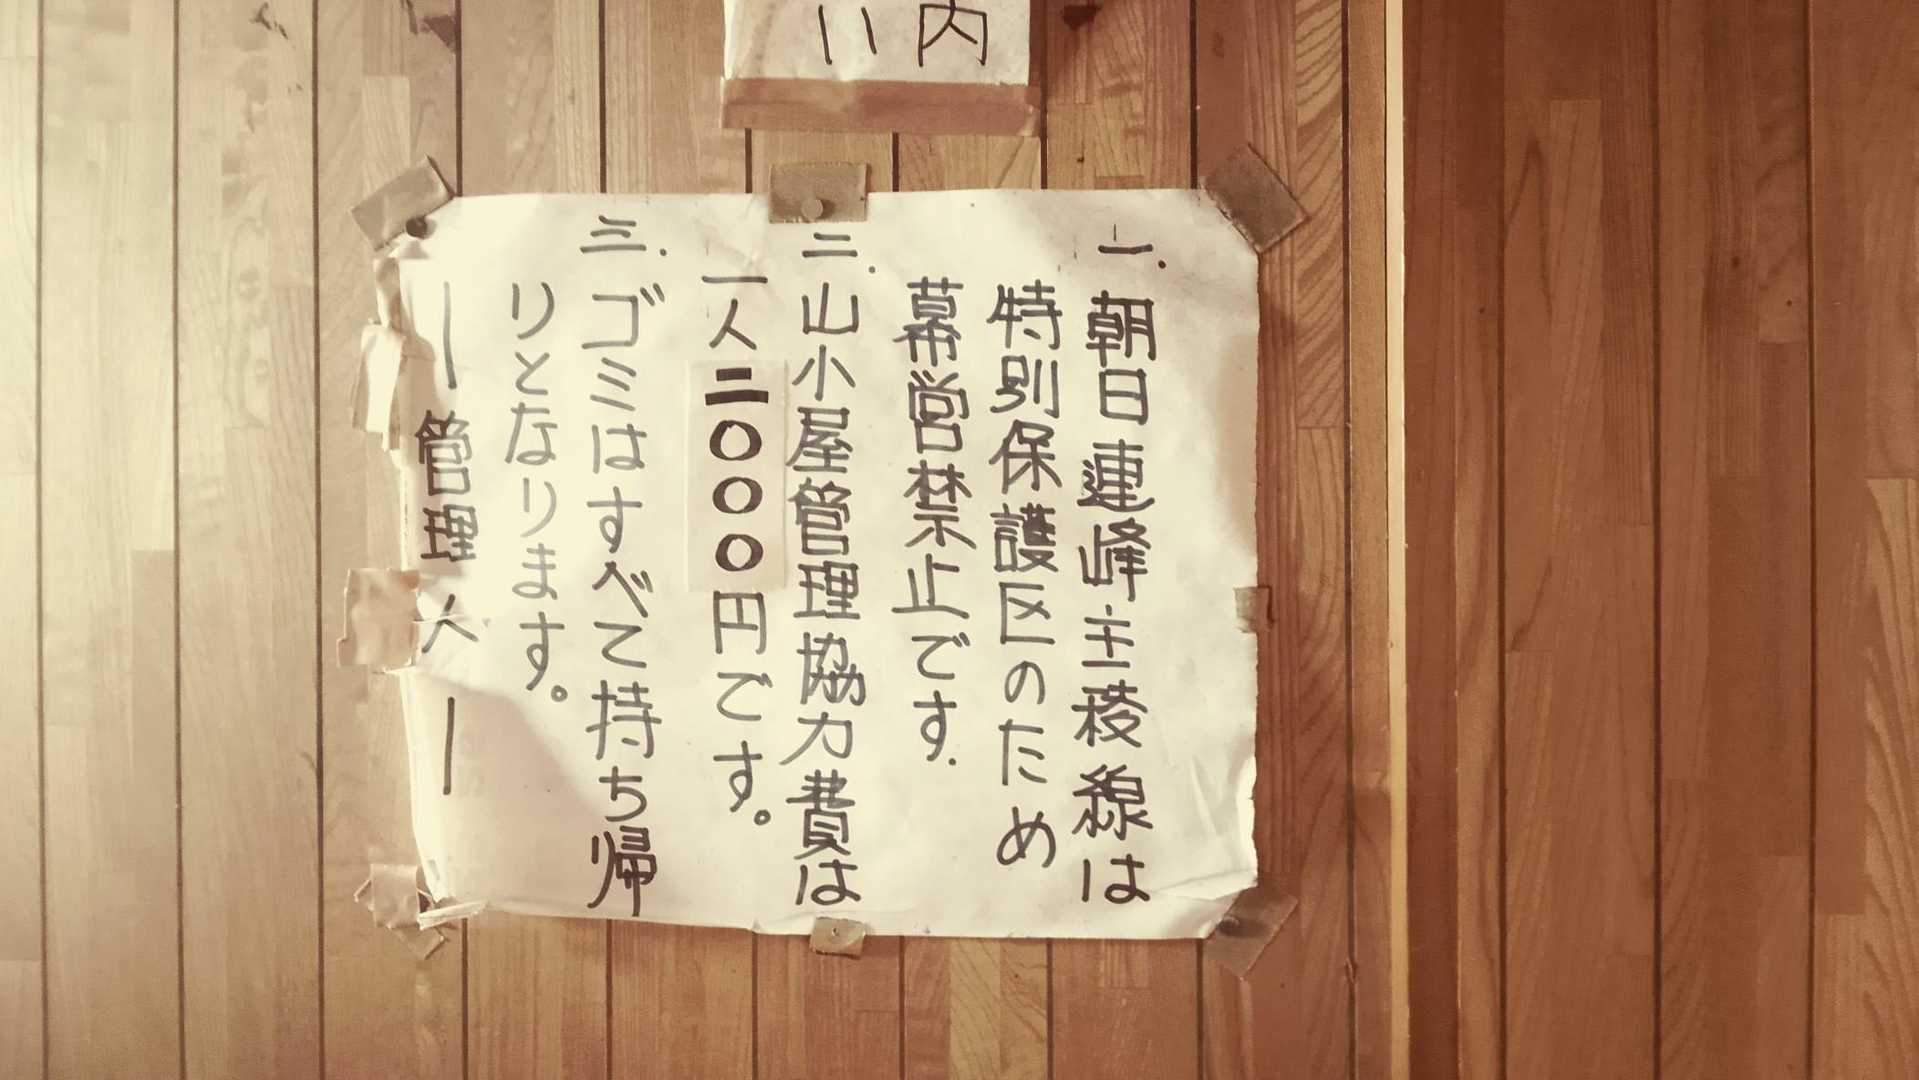 内
い
一.朝日連峰主稜線は
特別保護区のため
幕営禁止です.
二.山小屋管理協力費は
一人二〇〇〇円です。
三.ゴミはすべて持ち帰
りとなります。
―管理人―